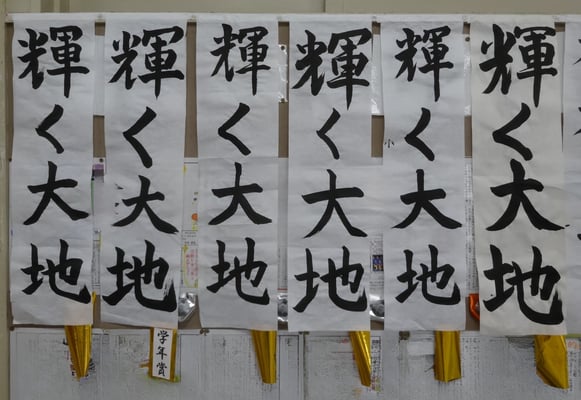 輝く大地
輝く大地
輝く大地
輝く大地
輝く大地
輝く大地
学年賞
小